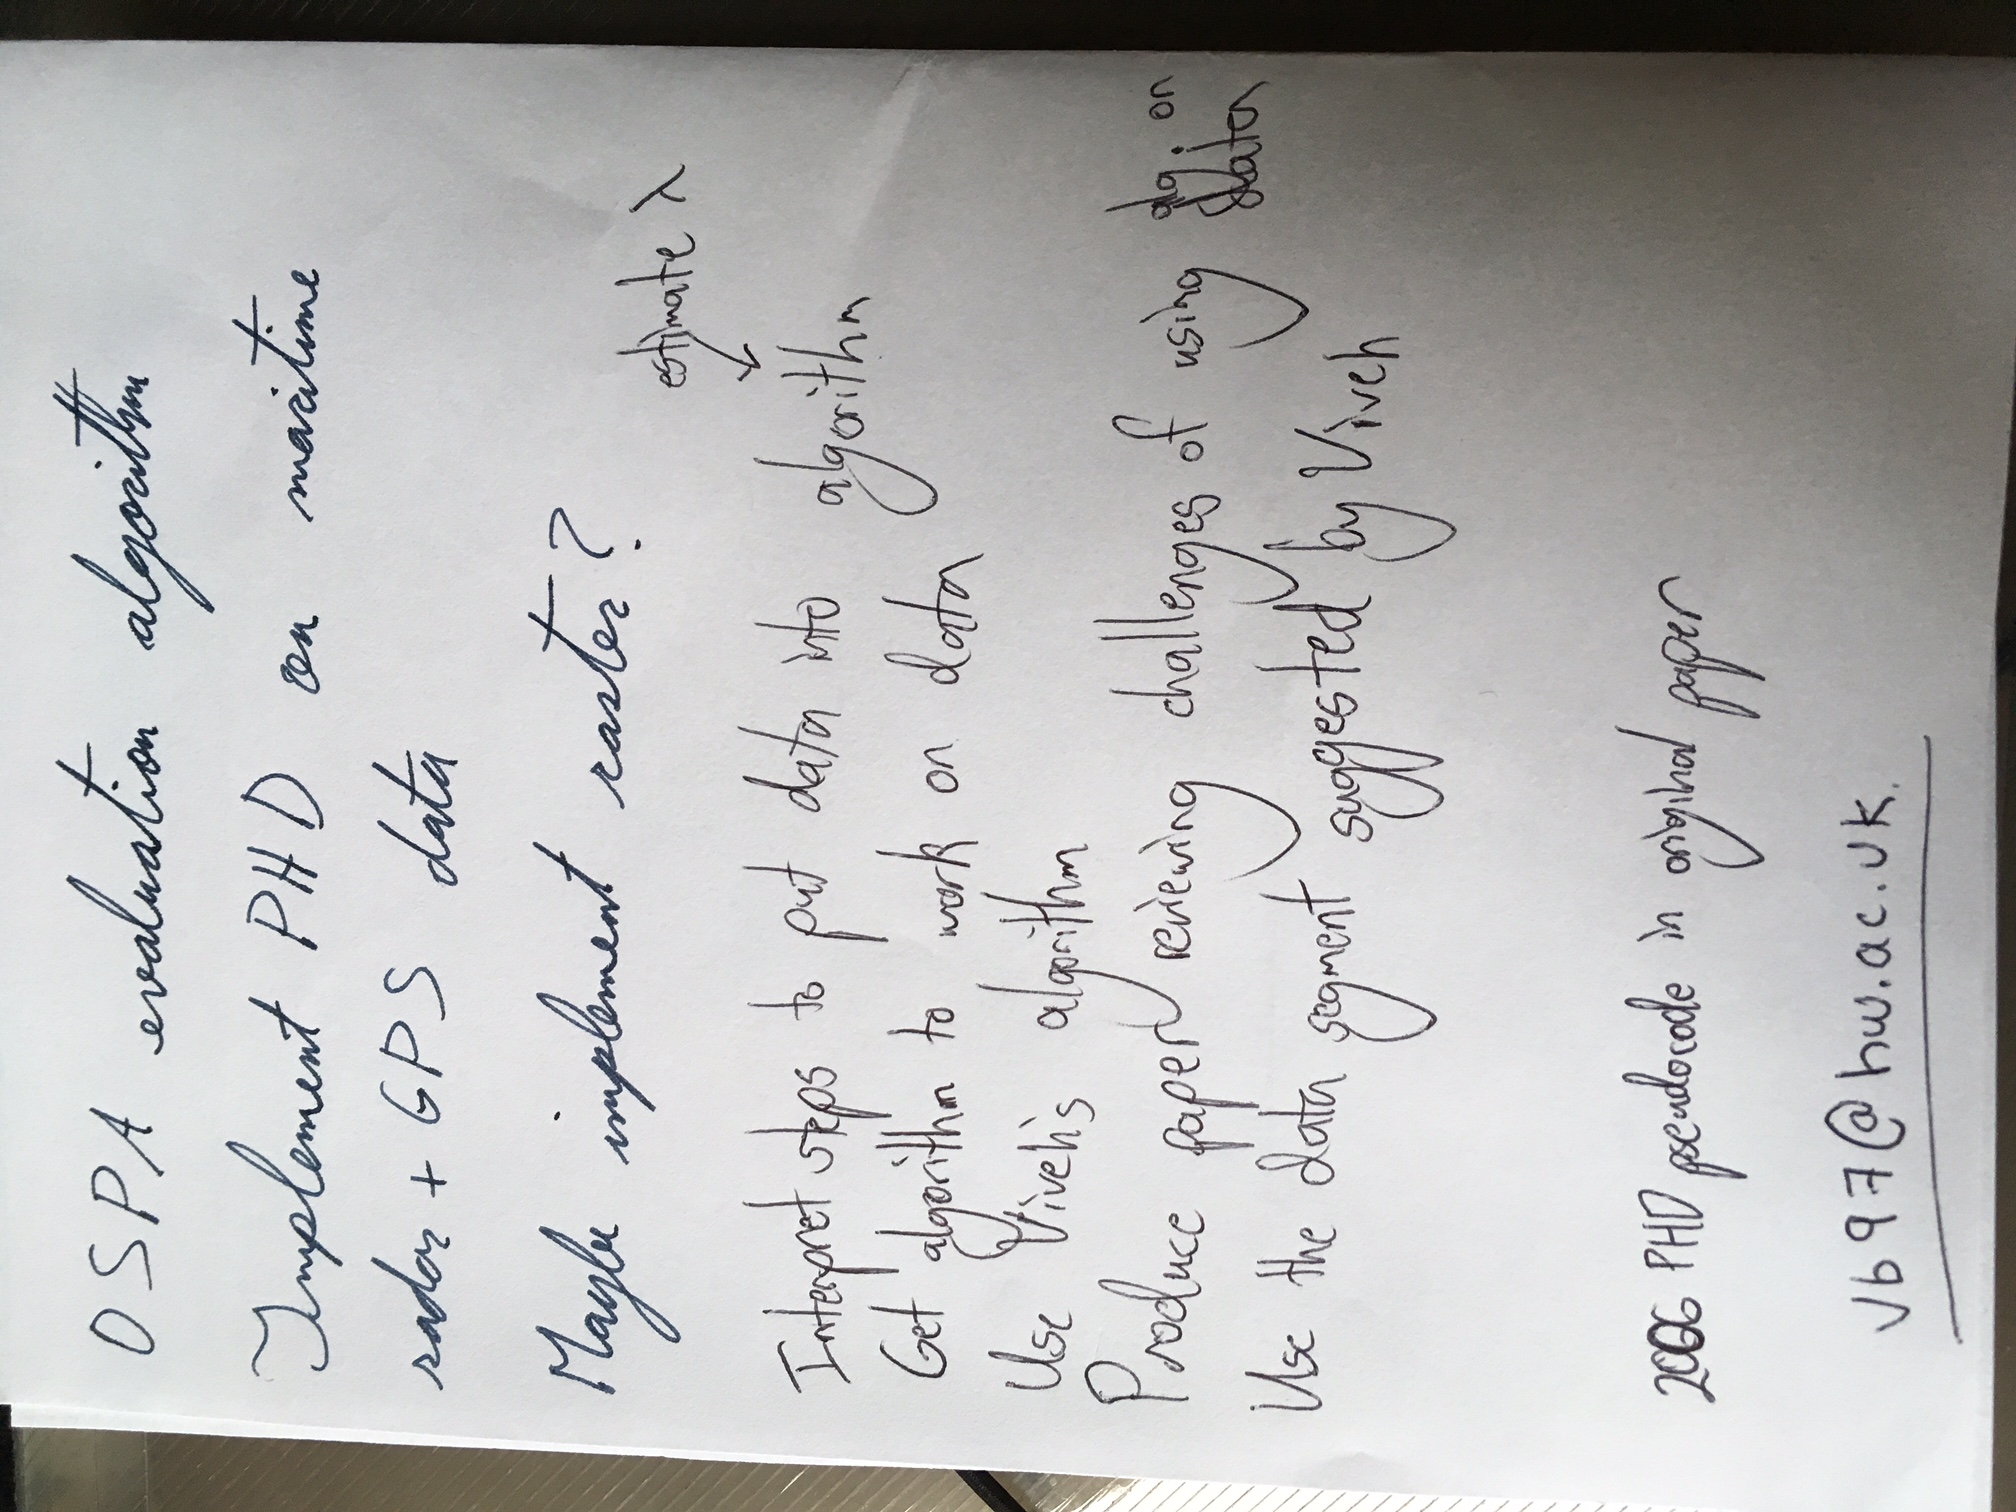 OSPA evaluation algorithm
Implement PHD on maritime
radar + GPS data
Maybe implement raster?
estimate λ
Interpret steps to put data into algorithm
Get algorithm to work on data
Use Viveh's algorithm
Produce paper reviewing challenges of using alg. on
data
Use the data segment suggested by Viveh
2006 PHD pseudocode in original paper
vb97@hw.ac.uk.